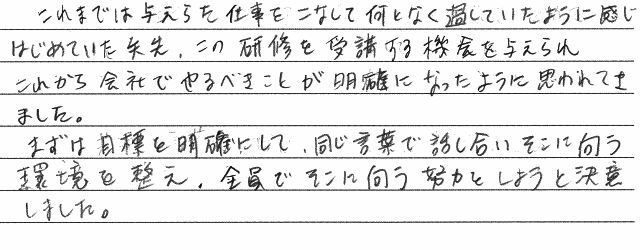 これまでは与えらた仕事をこなして何となく過していたように感じ
はじめていた矢先、この研修を受講する機会を与えられ
これから会社でやるべきことが明確になったように思われてき
ました。
まずは目標を明確にして、同じ言葉で話し合いそこに向う
環境を整え、全員でそこに向う努力をしようと決意
しました。